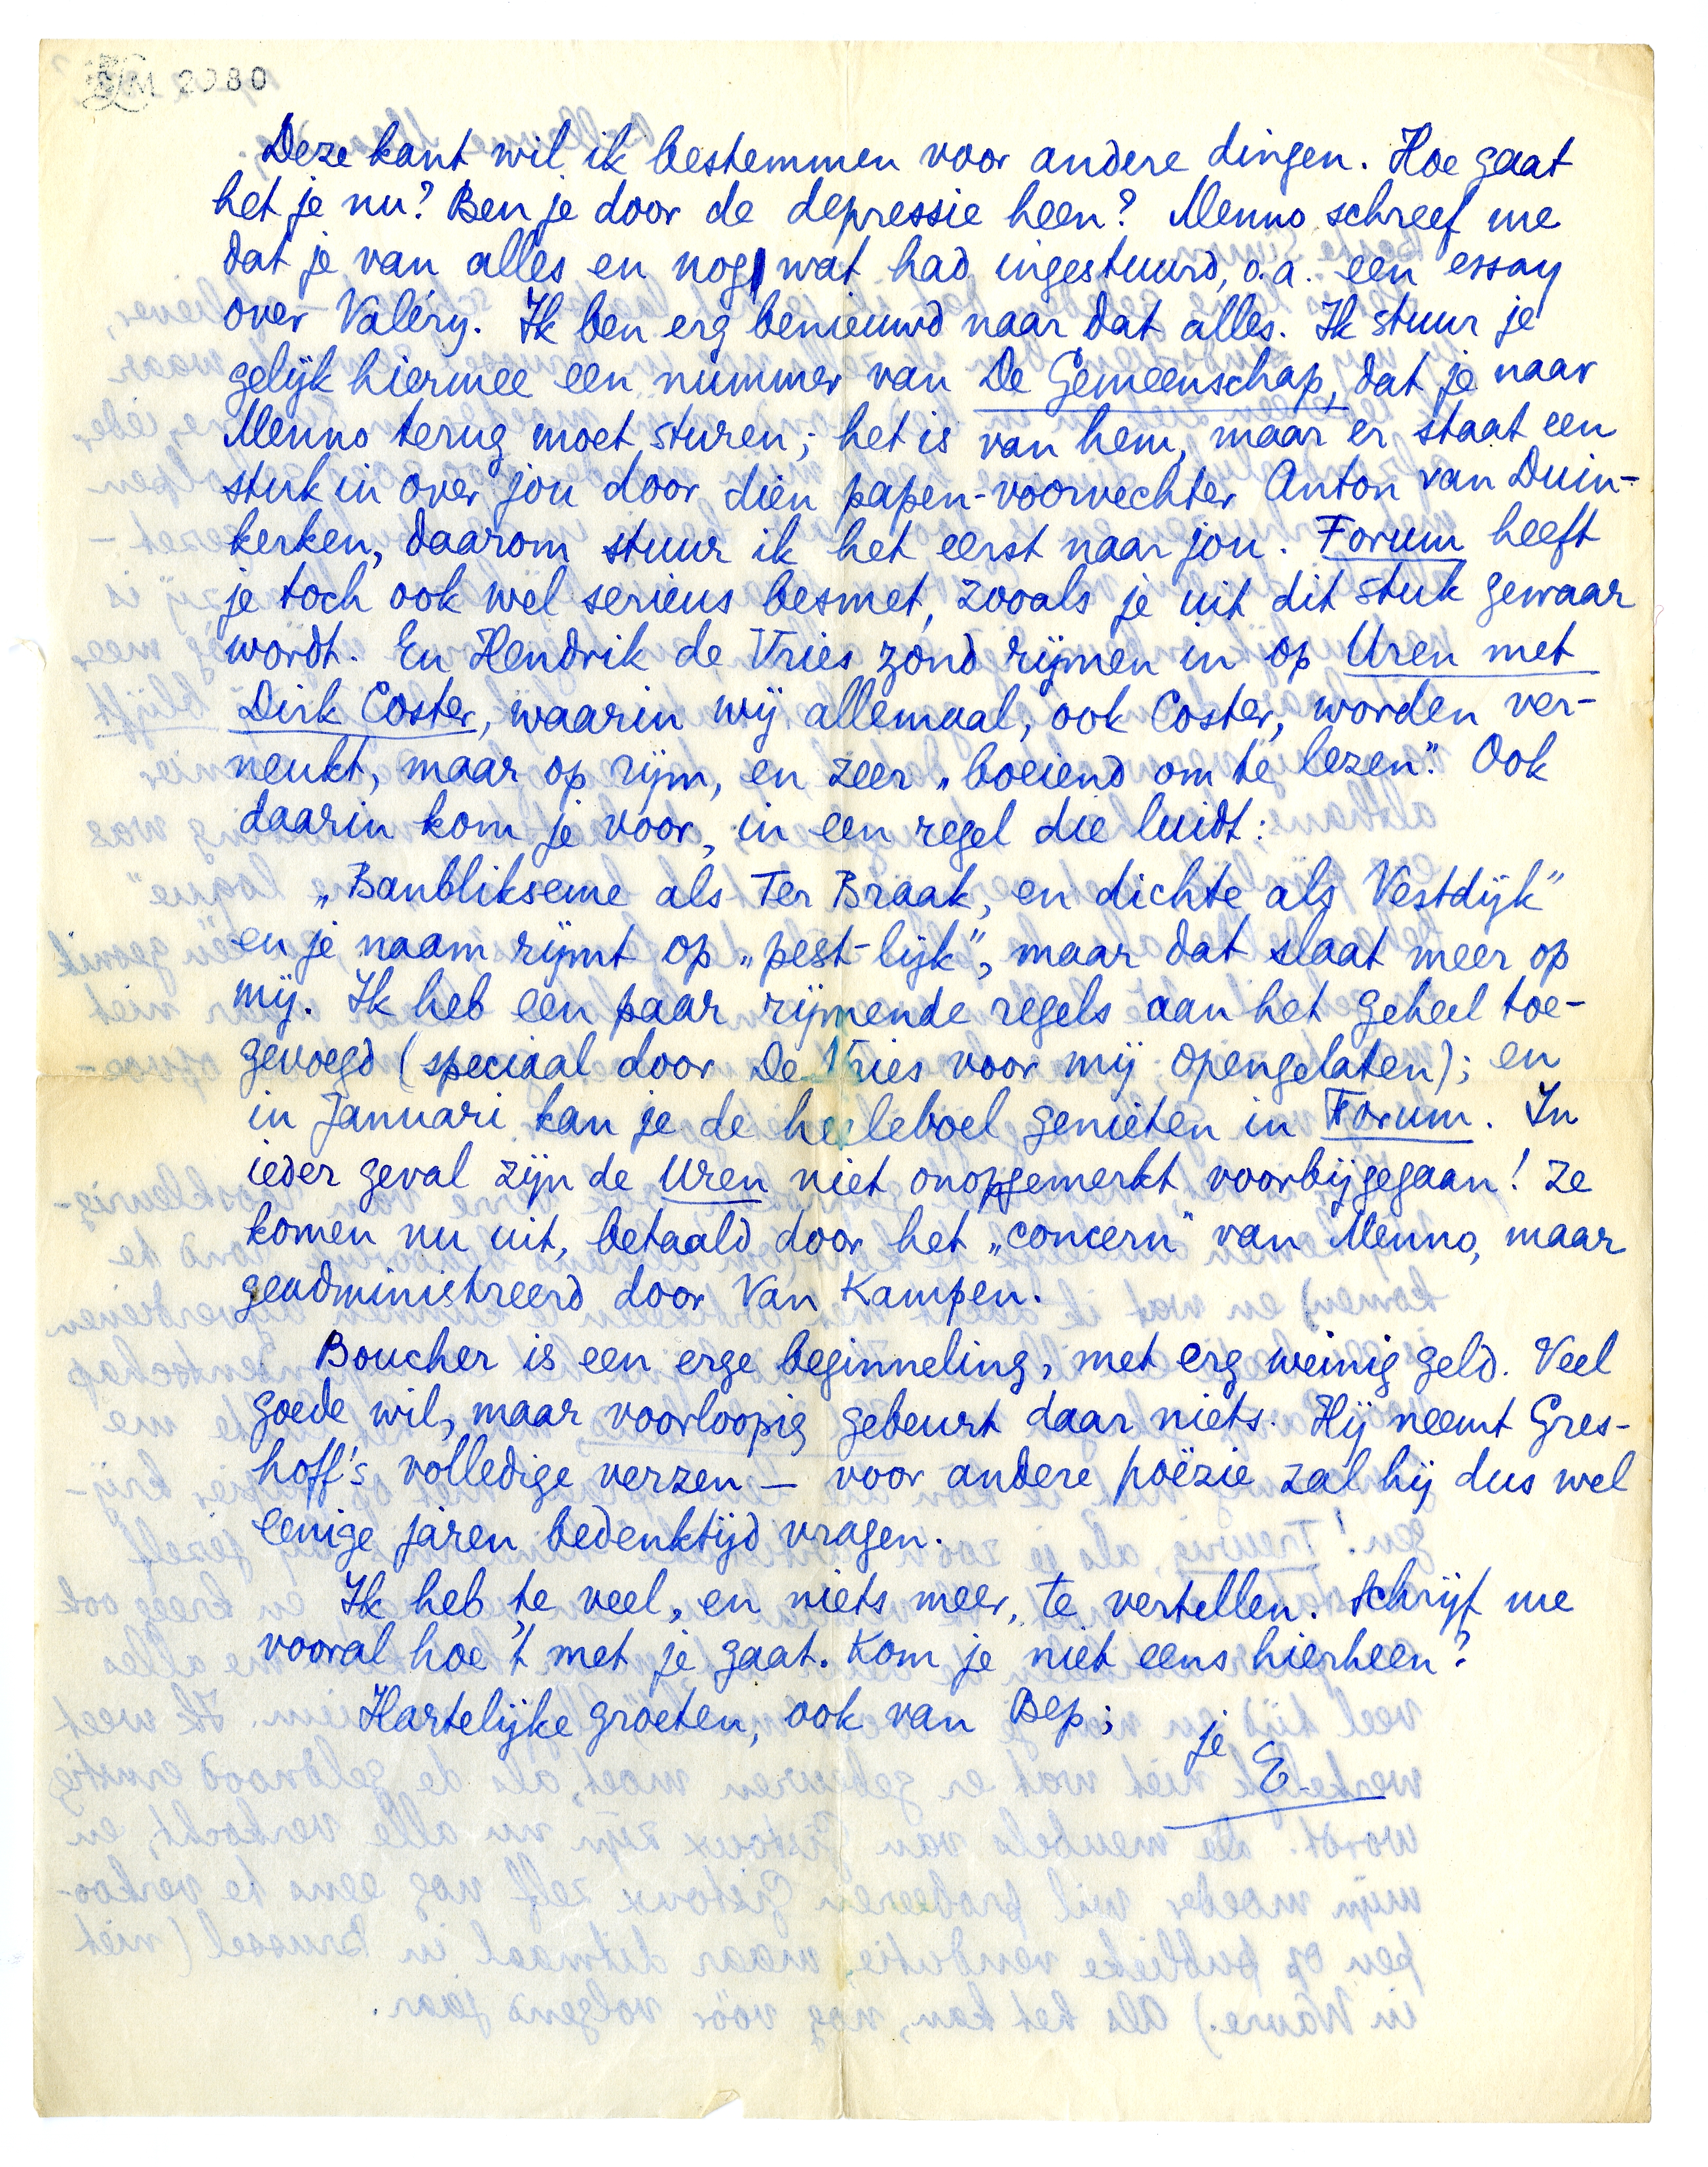 LM 2080
Deze kant wil ik bestemmen voor andere dingen. Hoe gaat
het je nu? Ben je door de depressie heen? Menno schreef me
dat je van alles en nog wat had ingestuurd, o.a. een essay
over Valéry. Ik ben erg benieuwd naar dat alles. Ik stuur je
gelijk hiermee een nummer van De Gemeenschap, dat je naar
Menno terug moet sturen; het is van hem, maar er staat een
stuk in over jou door dien papen-voorvechter Anton van Duin-
kerken, daarom stuur ik het eerst naar jou. Forum heeft
je toch ook wel serieus besmet, zooals je uit dit stuk gewaar
wordt. En Hendrik de Vries zond rijmen in op Uren met
Dirk Coster, waarin wij allemaal, ook Coster, worden ver-
neukt, maar op rijm, en zeer „boeiend om te lezen". Ook
daarin kom je voor, in een regel die luidt:
„Banblikseme als Ter Braak, en dichte als Vestdijk"
en je naam rijmt op „pest-lijk", maar dat slaat meer op
mij. Ik heb een paar rijmende regels aan het geheel toe-
gevoegd (speciaal door De Vries voor mij opengelaten); en
in Januari kan je de heeleboel genieten in Forum. In
ieder geval zijn de Uren niet onopgemerkt voorbijgegaan! Ze
komen nu uit, betaald door het „concern" van Menno, maar
geadministreerd door Van Kampen.
Boucher is een erge beginneling, met erg weinig geld. Veel
goede wil, maar voorloopig gebeurt daar niets. Hij neemt Gres-
hoff's volledige verzen – voor andere poëzie zal hij dus wel
eenige jaren bedenktijd vragen.
Ik heb te veel, en niets meer, te vertellen. Schrijf me
vooral hoe 't met je gaat. Kom je niet eens hierheen?
Hartelijke groeten, ook van Bep;
je
E.